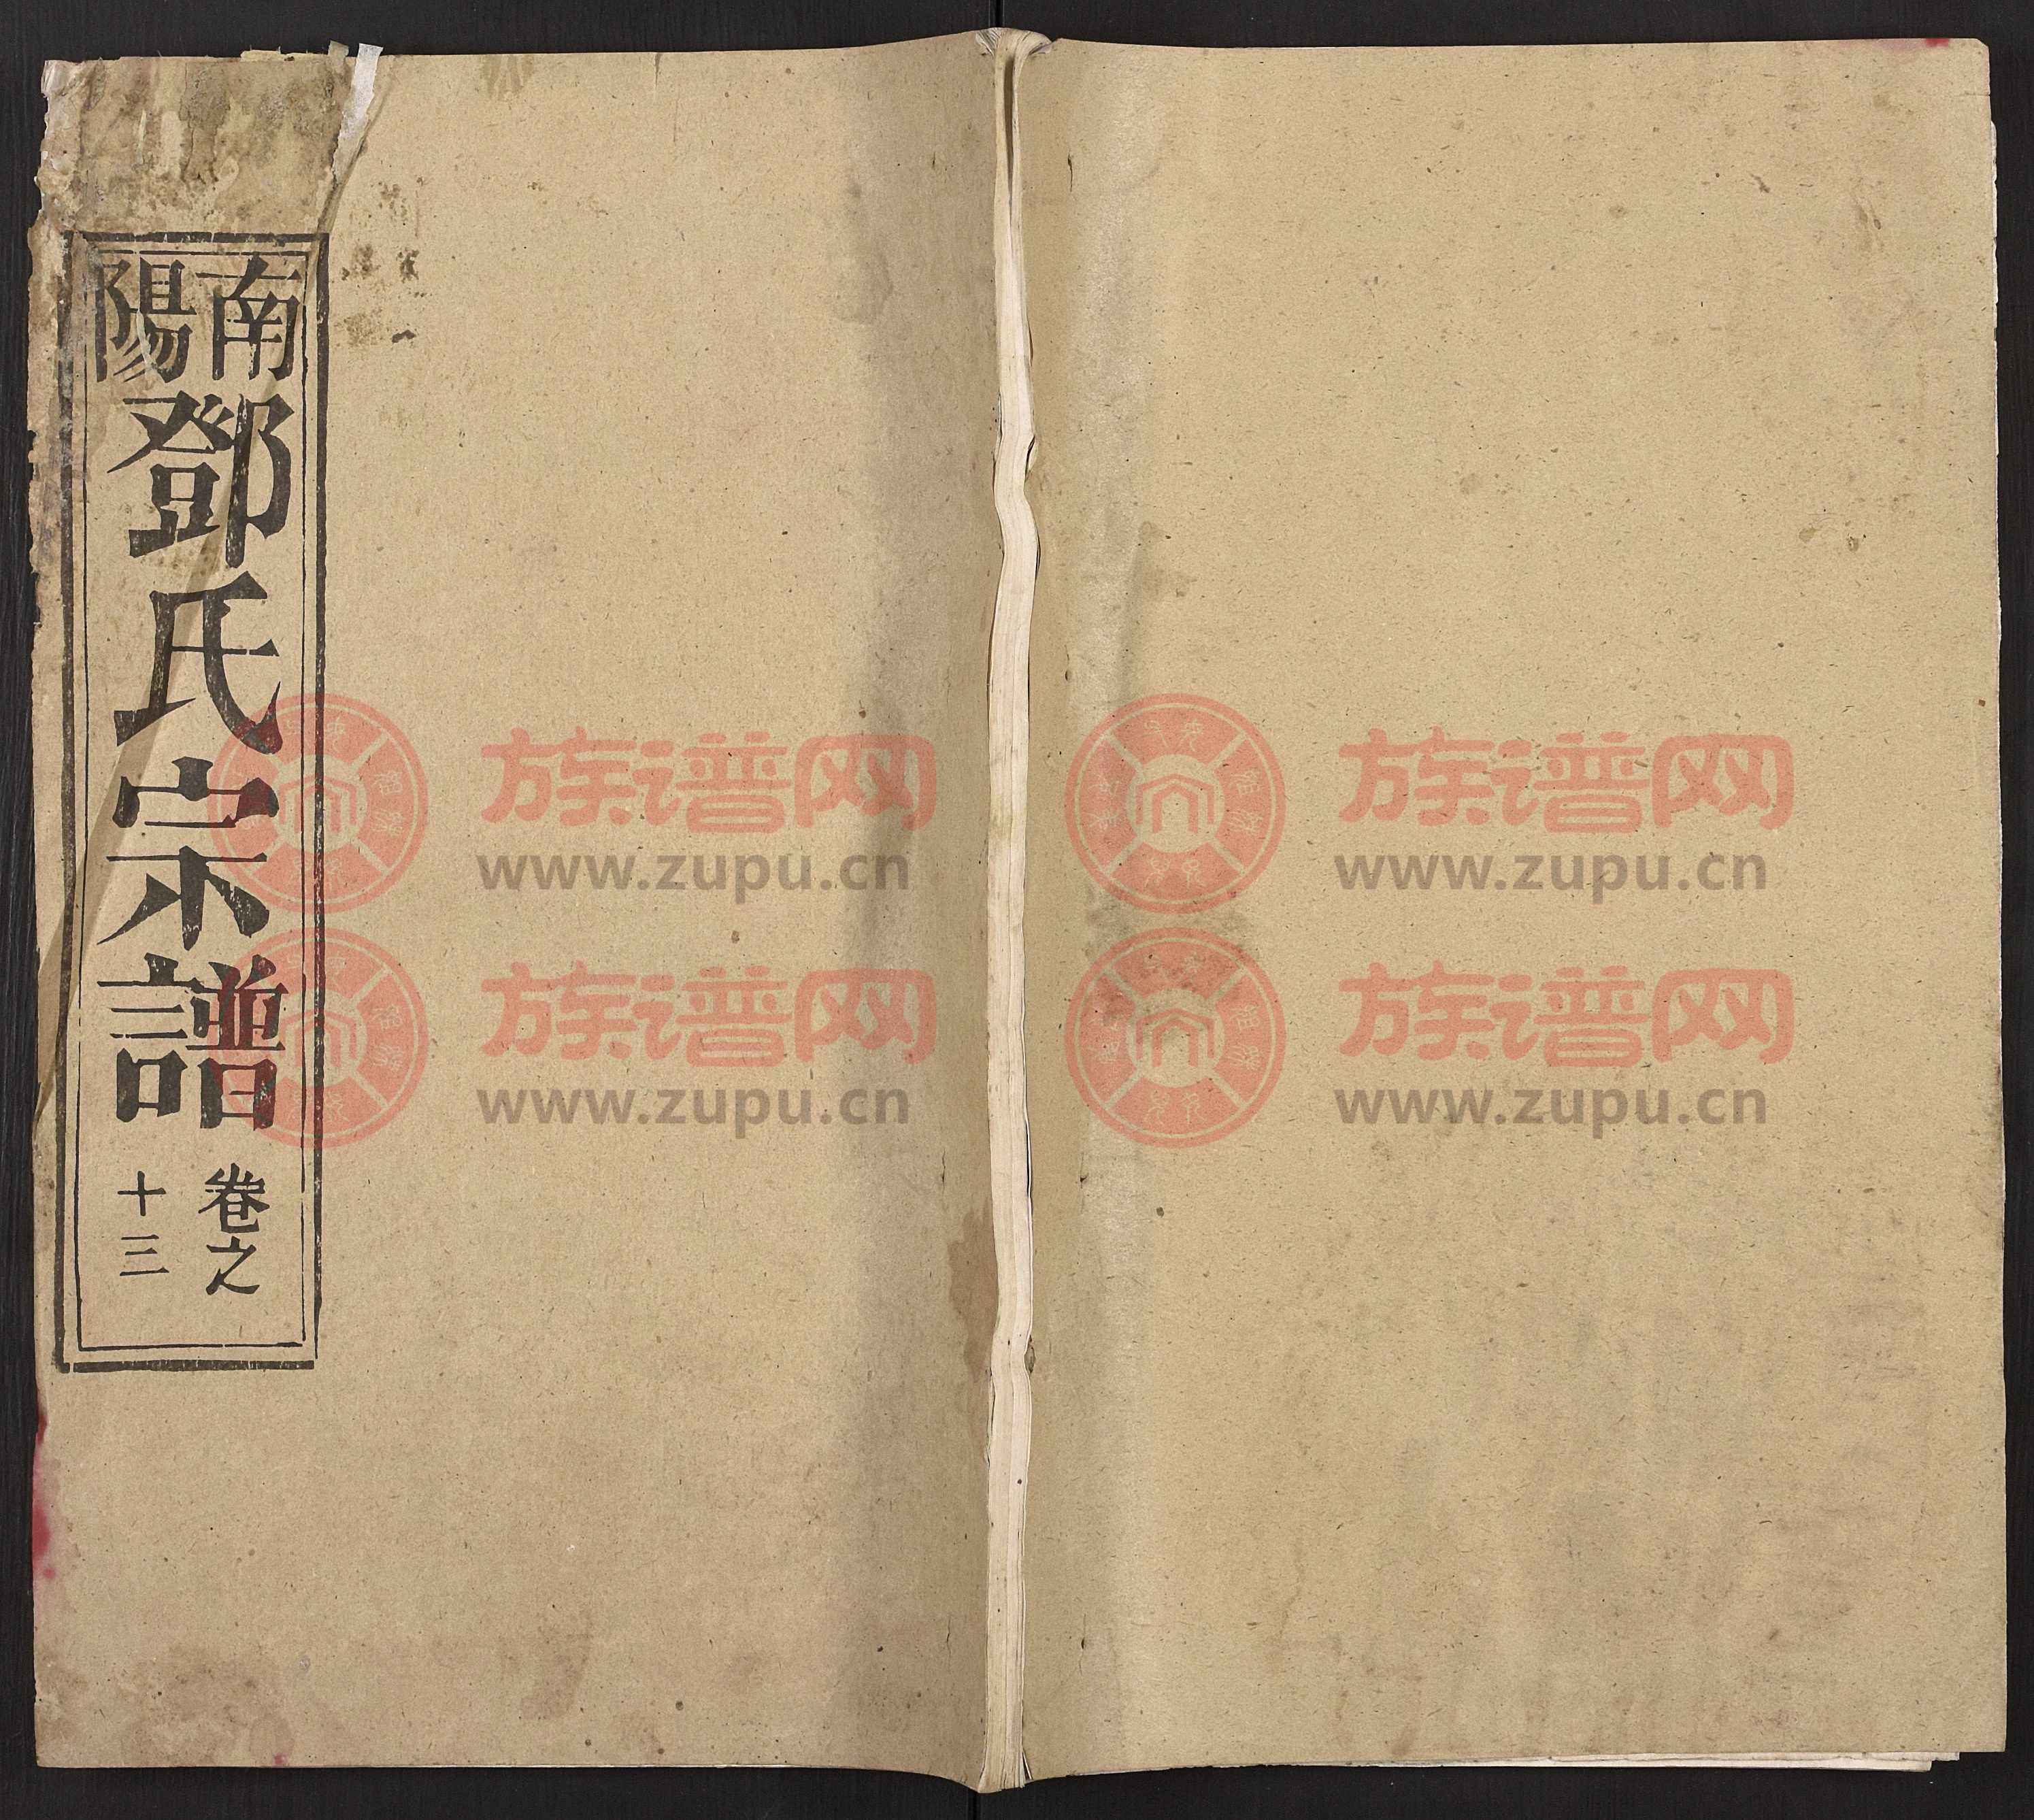 南陽鄧氏宗譜 卷之十三
族谱网
www.zupu.cn
族谱网
www.zupu.cn
族谱网
www.zupu.cn
族谱网
www.zupu.cn